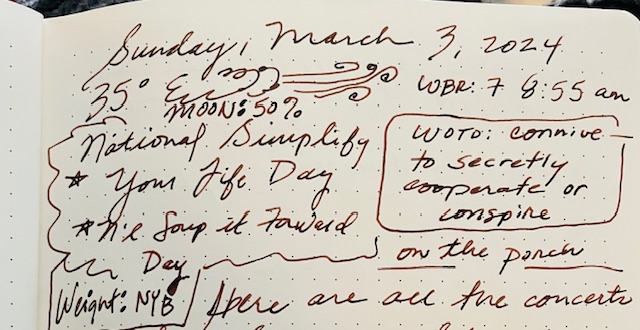 Sunday, March 3, 2024
35°
WBR: 7 8:55 am
MOON: 50%
National Simplify
* Your Life Day
* N'l Soup it Forward
Day
WOTD: connive-
to secretly
cooperate or
conspire
on the porch
Weight: NYB
Here are all the concerts